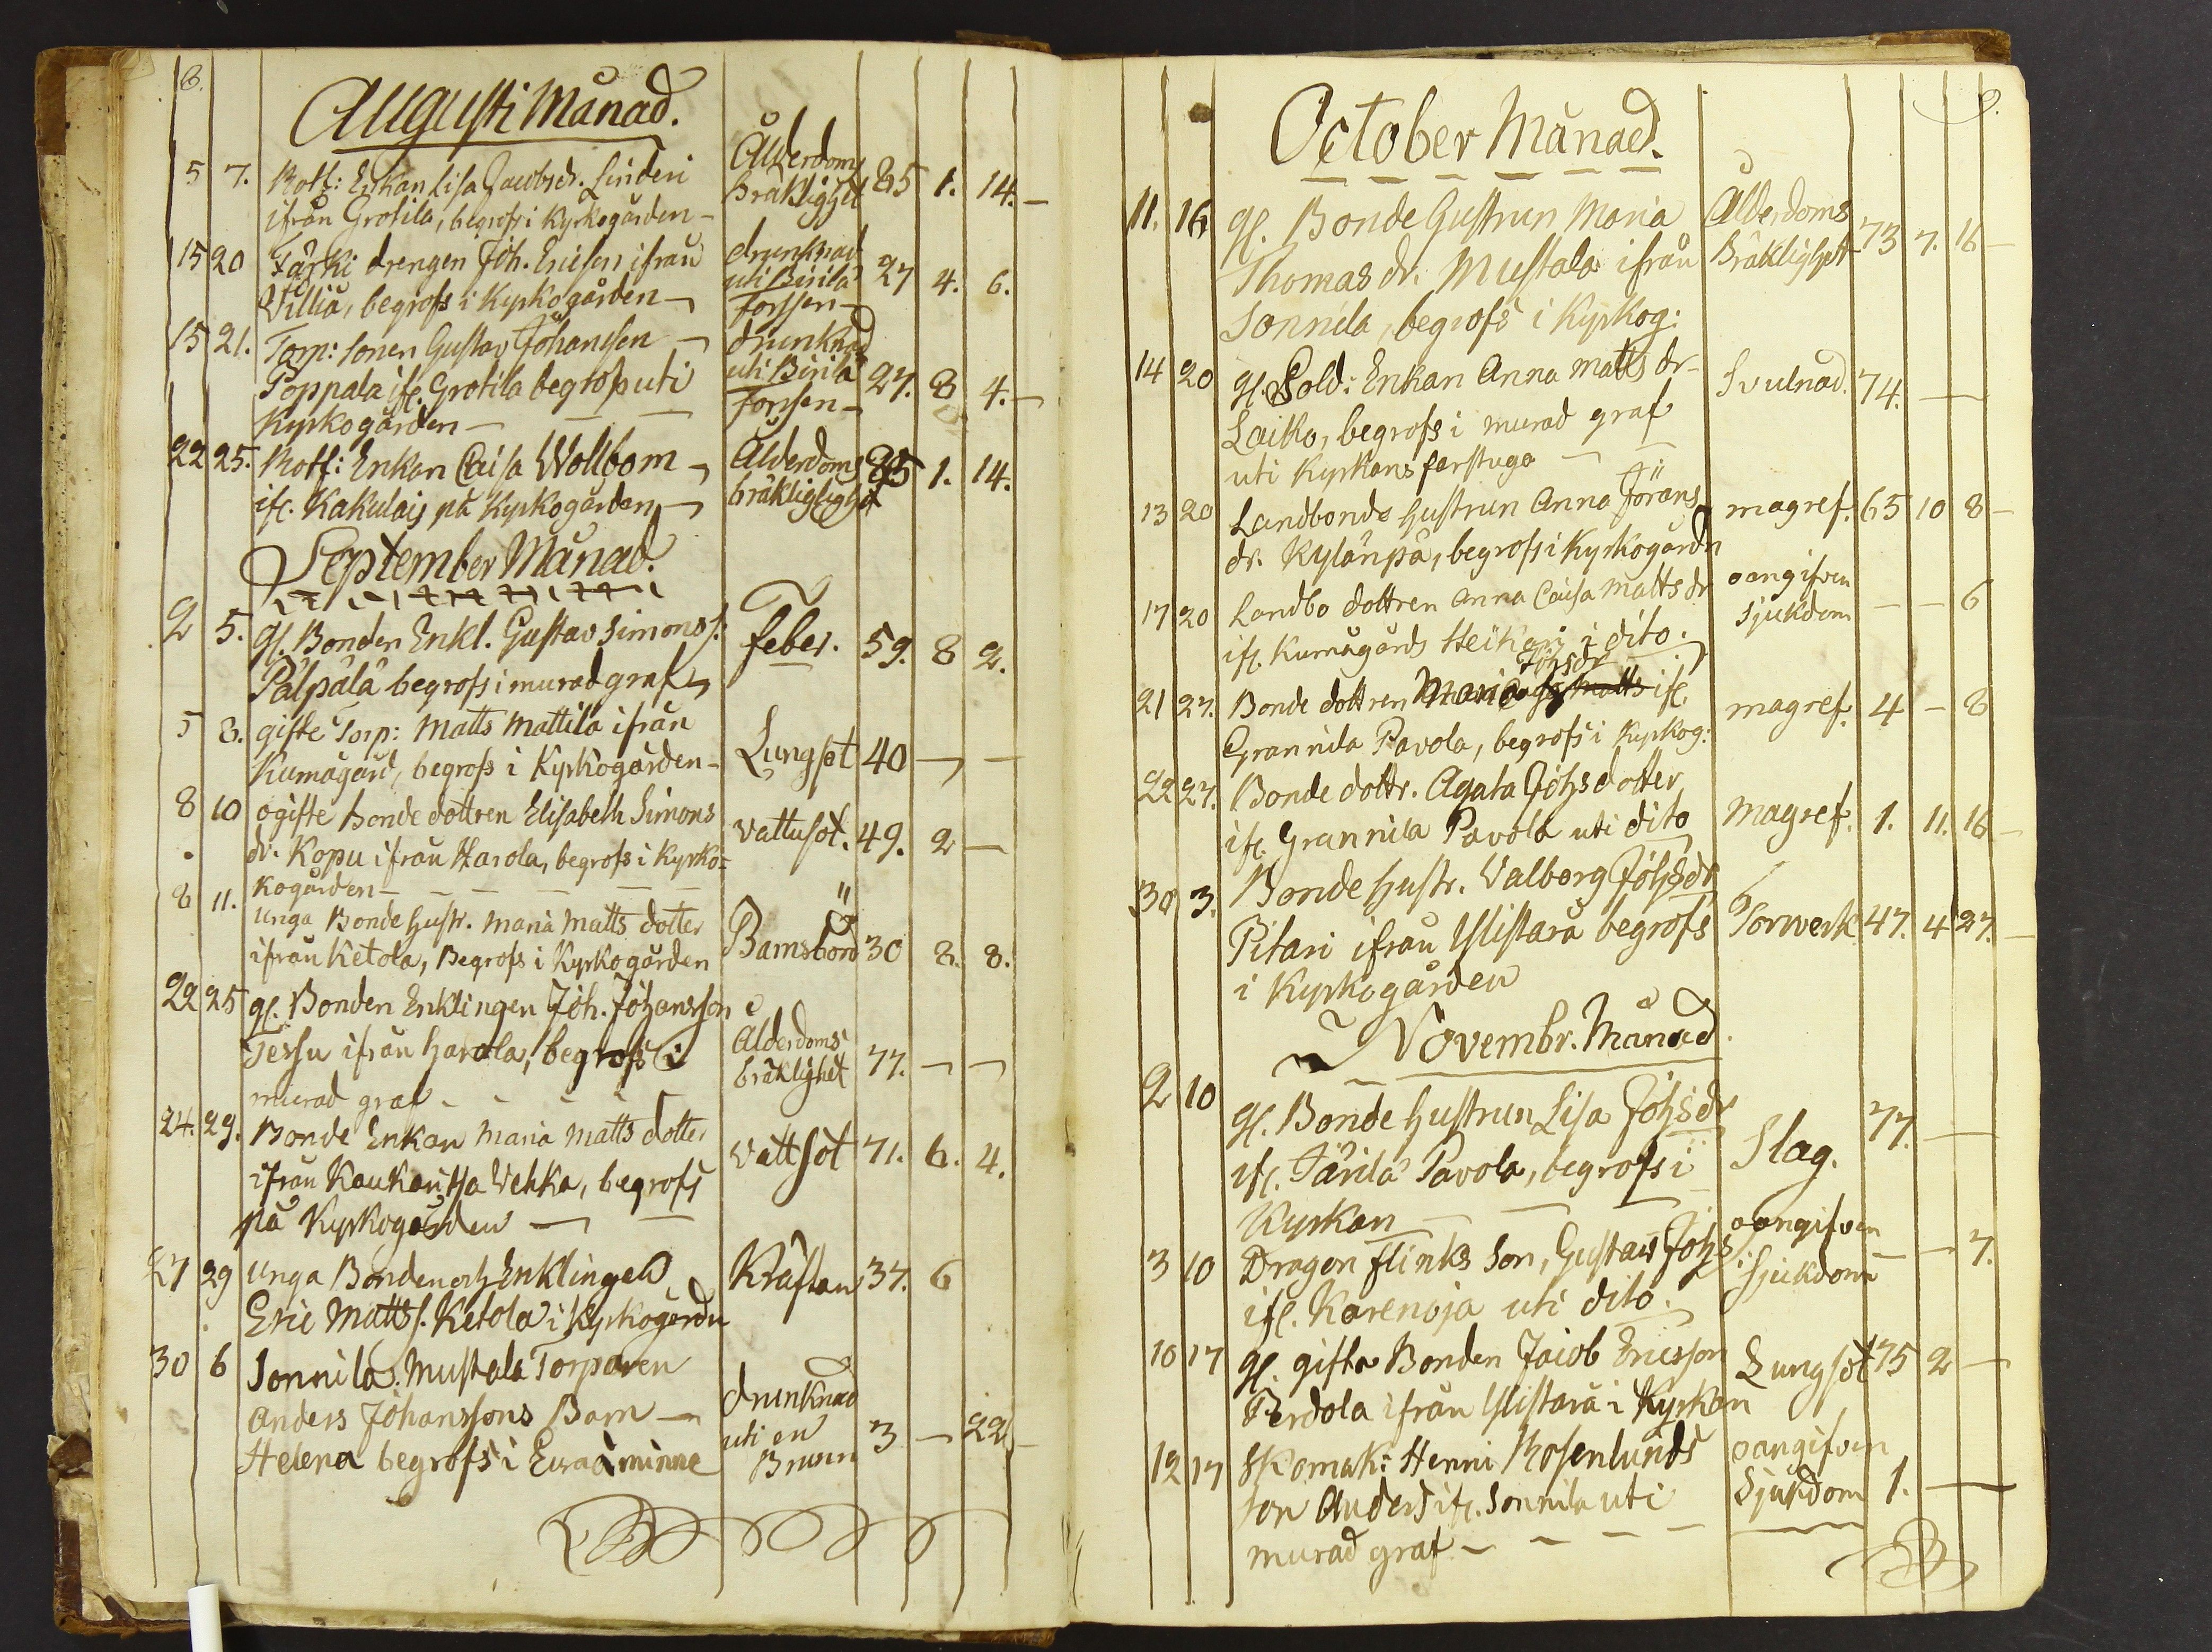 8.
Augusti Månad.
5 7. Rott: Enkan Lisa Jacobsdr. Linderi Ålderdoms
ifrån Grotila, begrofs i Kyrkogården - Bräklighet 85 1. 14. -
15 20 Färki drengen Joh. Ericson ifrån drunknad
Villiä, begrofs i Kyrkogården - uti Birilä 27 4. 6.
Forssen -
15 21. Torp: sonen Gustav Johansson - drunknad
Poppala ifr. Grotila begrofs uti uti Birilä 27. 8 4. -
Kyrkogården - - - Forssen -
22 25. Rott: Enkan Caisa Wollbom - Ålderdoms 85 1. 14.
ifr. Kakulais på Kyrkogården - bräklighet
September Månad.
2 5. gl. Bonden Enkl. Gustav Simons s:
Pälpälä begrofs i murad graf feber. 59. 8 2.
5 8. gifte Torp: Matts Mattila ifrån
Kumågård, begrofs i Kyrkogården - Lungsot 40 - -
8 10 ogifte Bonde dottren Elisabeth Simons
dr. Kopu ifrån Harola, begrofs i Kyrko= vattusot. 49. 2 -
kogården - - - - -
8 11. unga Bonde hustr. Maria Matts dotter
ifrån Ketola, Begrofs i Kyrkogården Barnsbörd 30 8. 8.
22 25 gl. Bonden Enklingen Joh. Johansson
Tessu ifrån Harola, begrofs i Alderdoms
murad graf - - - - bräklighet 77. - -
24. 29. Bonde Enkan Maria Matts dotter
ifrån Kaukaritsa Vehka, begrofs Vattsot 71. 6. 4.
på Kyrkogården - -
27 29 unga Bonden och Enklingen Kräftan 37. 6
Eric Matts s. Ketola i Kyrkogårdn
30 6 Sonnila Mustala Torparen
Anders Johanssons Barn - drunknad
Helena begrofs i Euraåminne uti en Brunn 3 - 22 -
9.
October Månad.
11. 16 gl. Bonde hustrun Maria Ålderdoms
Thomas dr. Mustala ifrån Bräklighet 73 7. 16 -
Sonnila, begrofs i Kyrkog:
14 20 gl. Sold: Enkan Anna Matts dr - Svulnad. 74. -
Laiko, begrofs i murad graf
uti Kyrkans farstuga - -
13 20 Landbonde hustrun Anna Jörans magref. 65 10 8 -
dr. Kylänpä, begrofs i Kyrkogårdn
17 20 Landbo dottren Anna Caisa Matts dr oangifven
ifr. Kumågårds Heikari i dito. sjukdom - - 6
Johsdr
21 27. Bonde dottren Maria Matts ifr. magref. 4 - 8
Grannila Pavola, begrofs i Kyrkog:
22 27. Bonde dottr. Agata Johs dotter
ifr. Grannila Pavola uti dito Magref. 1. 11. 16 -
30 3. Bonde hustr. Valborg Johsdr
Pitari ifrån Ylistarå begrofs Torwerk 47. 4 27. -
i Kyrkogården
Novembr. Månad.
2 10 gl. Bonde hustrun Lisa Johsdr 77. -
ifr. Tärilä Pavola, begrofs i Slag.
Kyrkan - - -
3 10 Dragon Flinks Son, Gustav Johs. oangifven
ifr. Karenoja uti dito. Sjukdom - - 7.
10 17 gl. gifta Bonden Jacob Ericsson Lungsot 75 2 -
Perdola ifrån Ylistarå i Kyrkan
12 17 Skomak: Henric Rosenlunds oangifven
son Anders ifr. Sonnila uti Sjukdom 1. -
murad graf - - - -